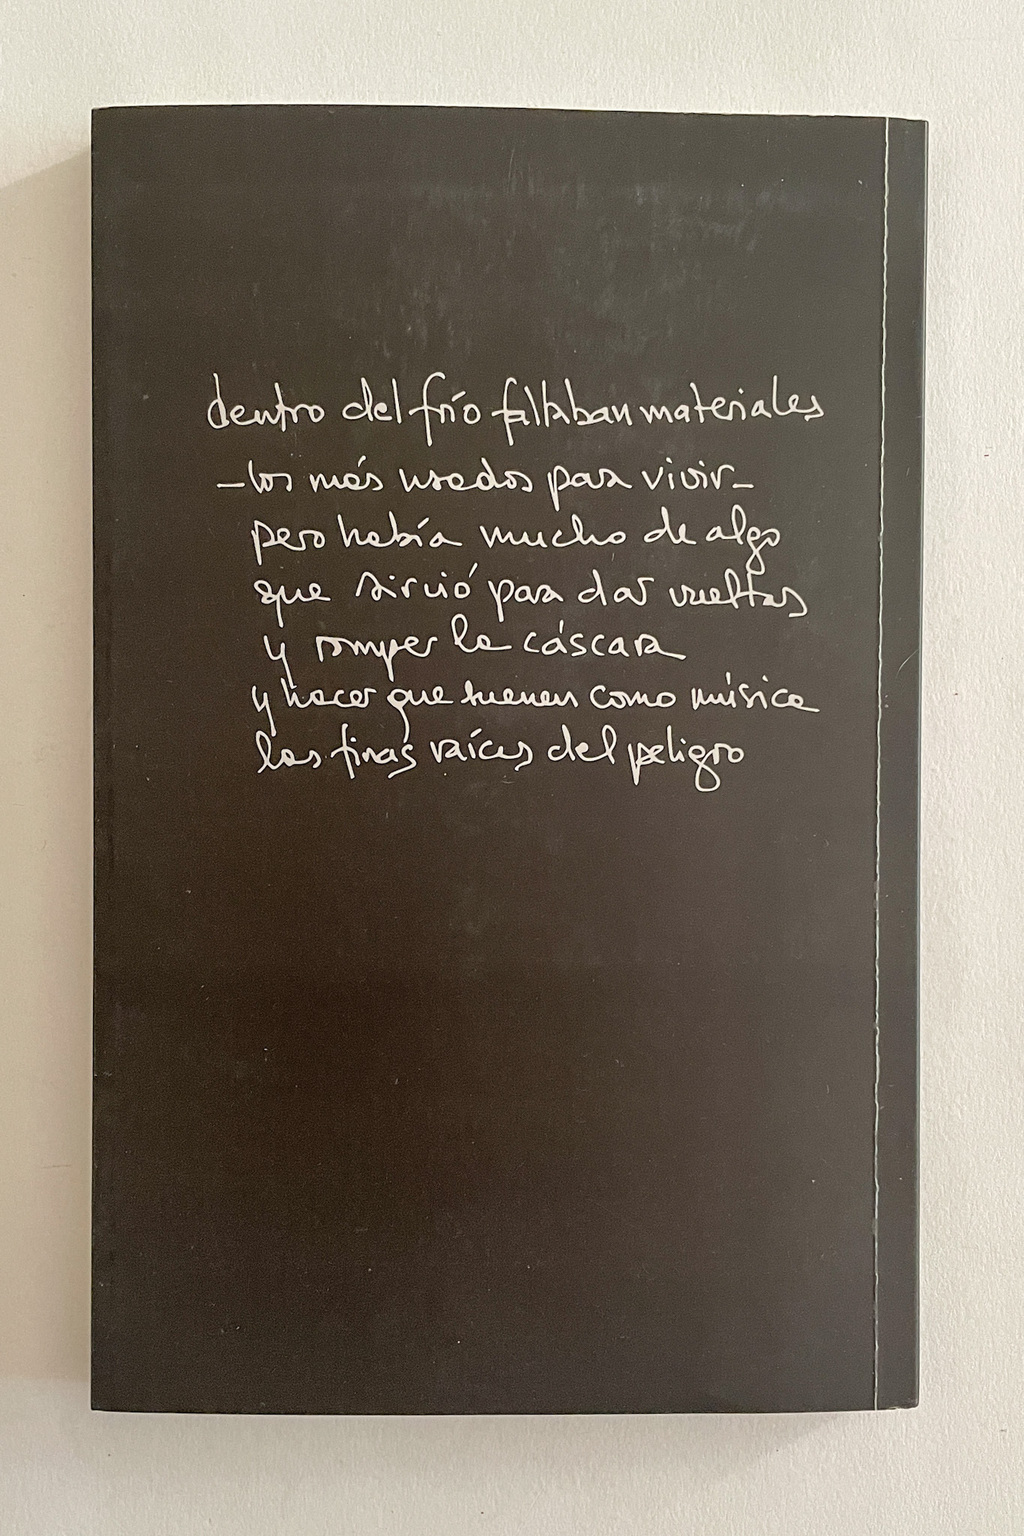 dentro del frío faltaban materiales
—los más usados para vivir—
pero había mucho de algo
que sirvió para dar vueltas
y romper la cáscara
y hacer que suenen como música
las finas raíces del peligro